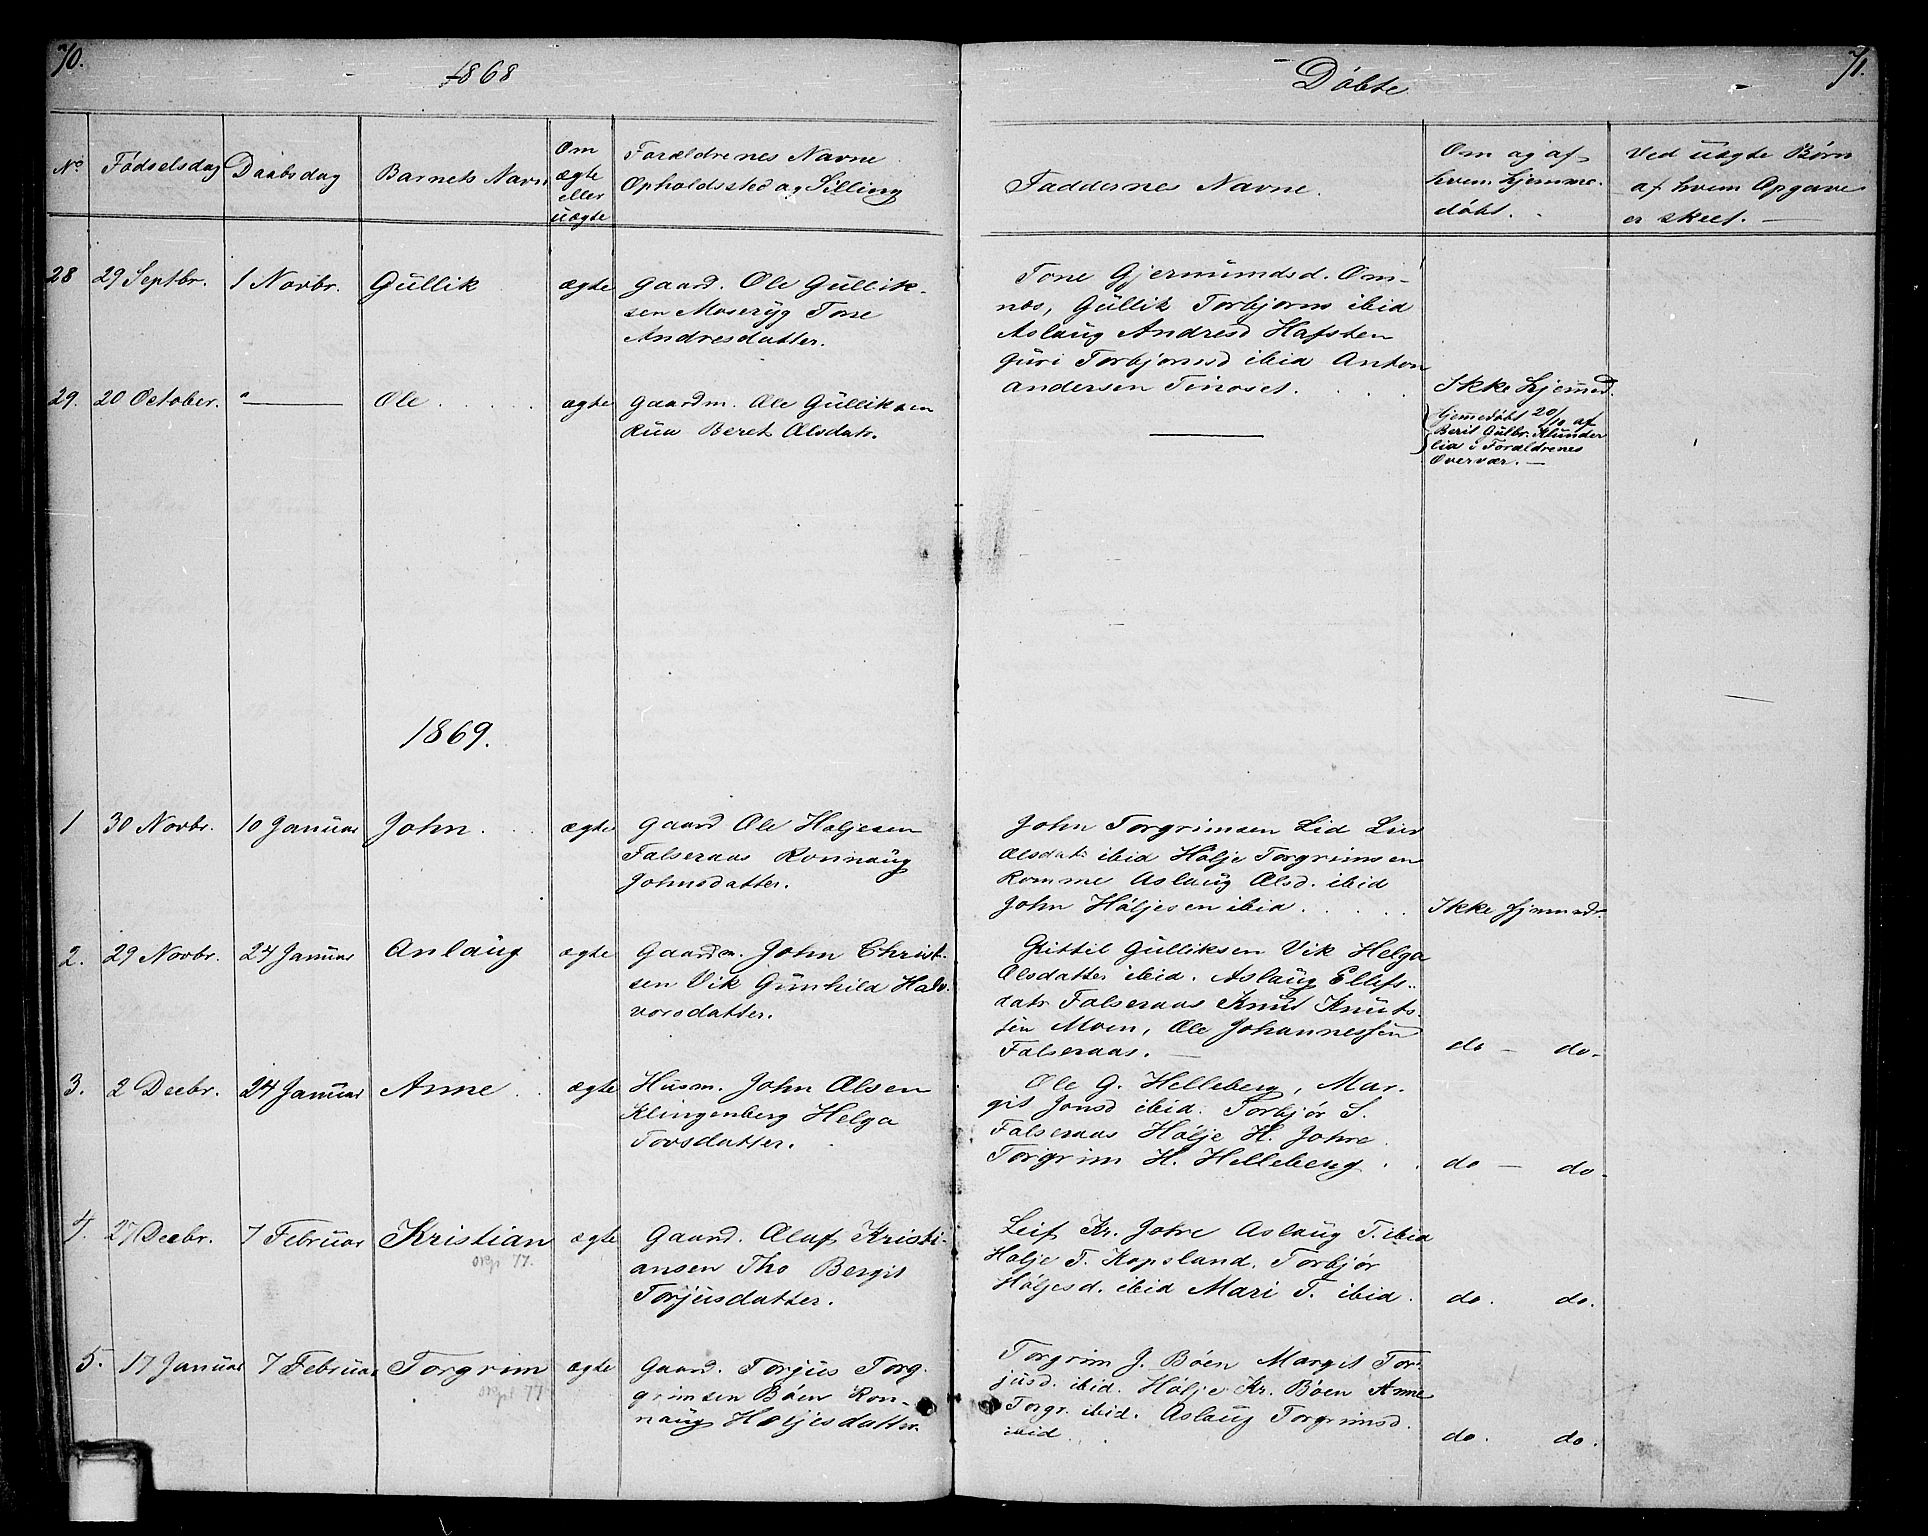 70.
1868
Døbte
71.
No
Fødselsdag
Daabsdag
Barnets Navn
Om
ægte
eller
uægte
Forældrenes Navne
Opholdssted og Stilling
Faddernes Navne.
Om og af
hvem hjemme-
døbt.
Ved uægte Børn
af hvem Opgave
er skeet.
28 29 Septbr. 1 Novbr. Gullik ægte gaard. Ole Gullik-
sen Moseryg Tone
Andresdatter.
Tone Gjermundsd. Om-
nes, Gullik Torbjorns ibid
Aslaug Andresd Hafsten
Guri Torbjornsd ibid Anton
Andersen Tinoset.
Ikke hjemmed.
29. 20 October. " Ole ægte gaardm. Ole Gulliksen
Rua Beret Olsdatr.
hjemmedøbt 20/10 af
Berit Gulbr. Klunder
lia i Forældrenes
Overvær.
1869.
1 30 Novbr. 10 Januar John. ægte Gaard Ole Holjesen
Falseraas Ronnaug
Johnsdatter.
John Torgrimsen Lid Liv
Olsdatr ibid Holje Torgrimsen
Romme Aslaug Olsd. ibid
John Høljesen ibid.
Ikke hjemmedr.
2. 29 Novbr. 24 Januar Anlaug ægte Gaardm. John Christ-
sen Vik Gunhild Hal-
vorsdatter.
Kittil Gulliksen Vik Helga
Olsdatter ibid. Aslaug Ellefs-
datr Falseraas Knut Knuts-
sen Moen, Ole Johannessen
Falseraas.
do - do-
3. 2 Decbr. 24 Januar Anne ægte Husm. John Olsen
Klingenberg Helga
Tovsdatter.
Ole G. Helleberg, Mar-
git Jonsd ibid. Torbjør S.
Falseraas Hølje H. Johre
Torgrim H. Helleberg
do - do-
4. 27 Decbr. 7 Februar Kristian ægte Gaard. Oluf Kristi-
ansen Tho Bergit
Torjusdatter.
Leif Kr. Johre Aslaug T. ibid
Holje T. Kopsland. Torbjør
Høljesd. ibid Mari T. ibid.
do. do.
5. 17 Januar 7 Februar Torgrim ægte Gaard. Torjus Torg-
grimsen Bøen Ron-
naug Høljesdatter.
Torgrim J. Bøen Margit Tor-
jusd. ibid. Hølje Kr. Bøen Anne
Torgr. ibid. Aslaug Torgrimsd.
ibid
do. do.